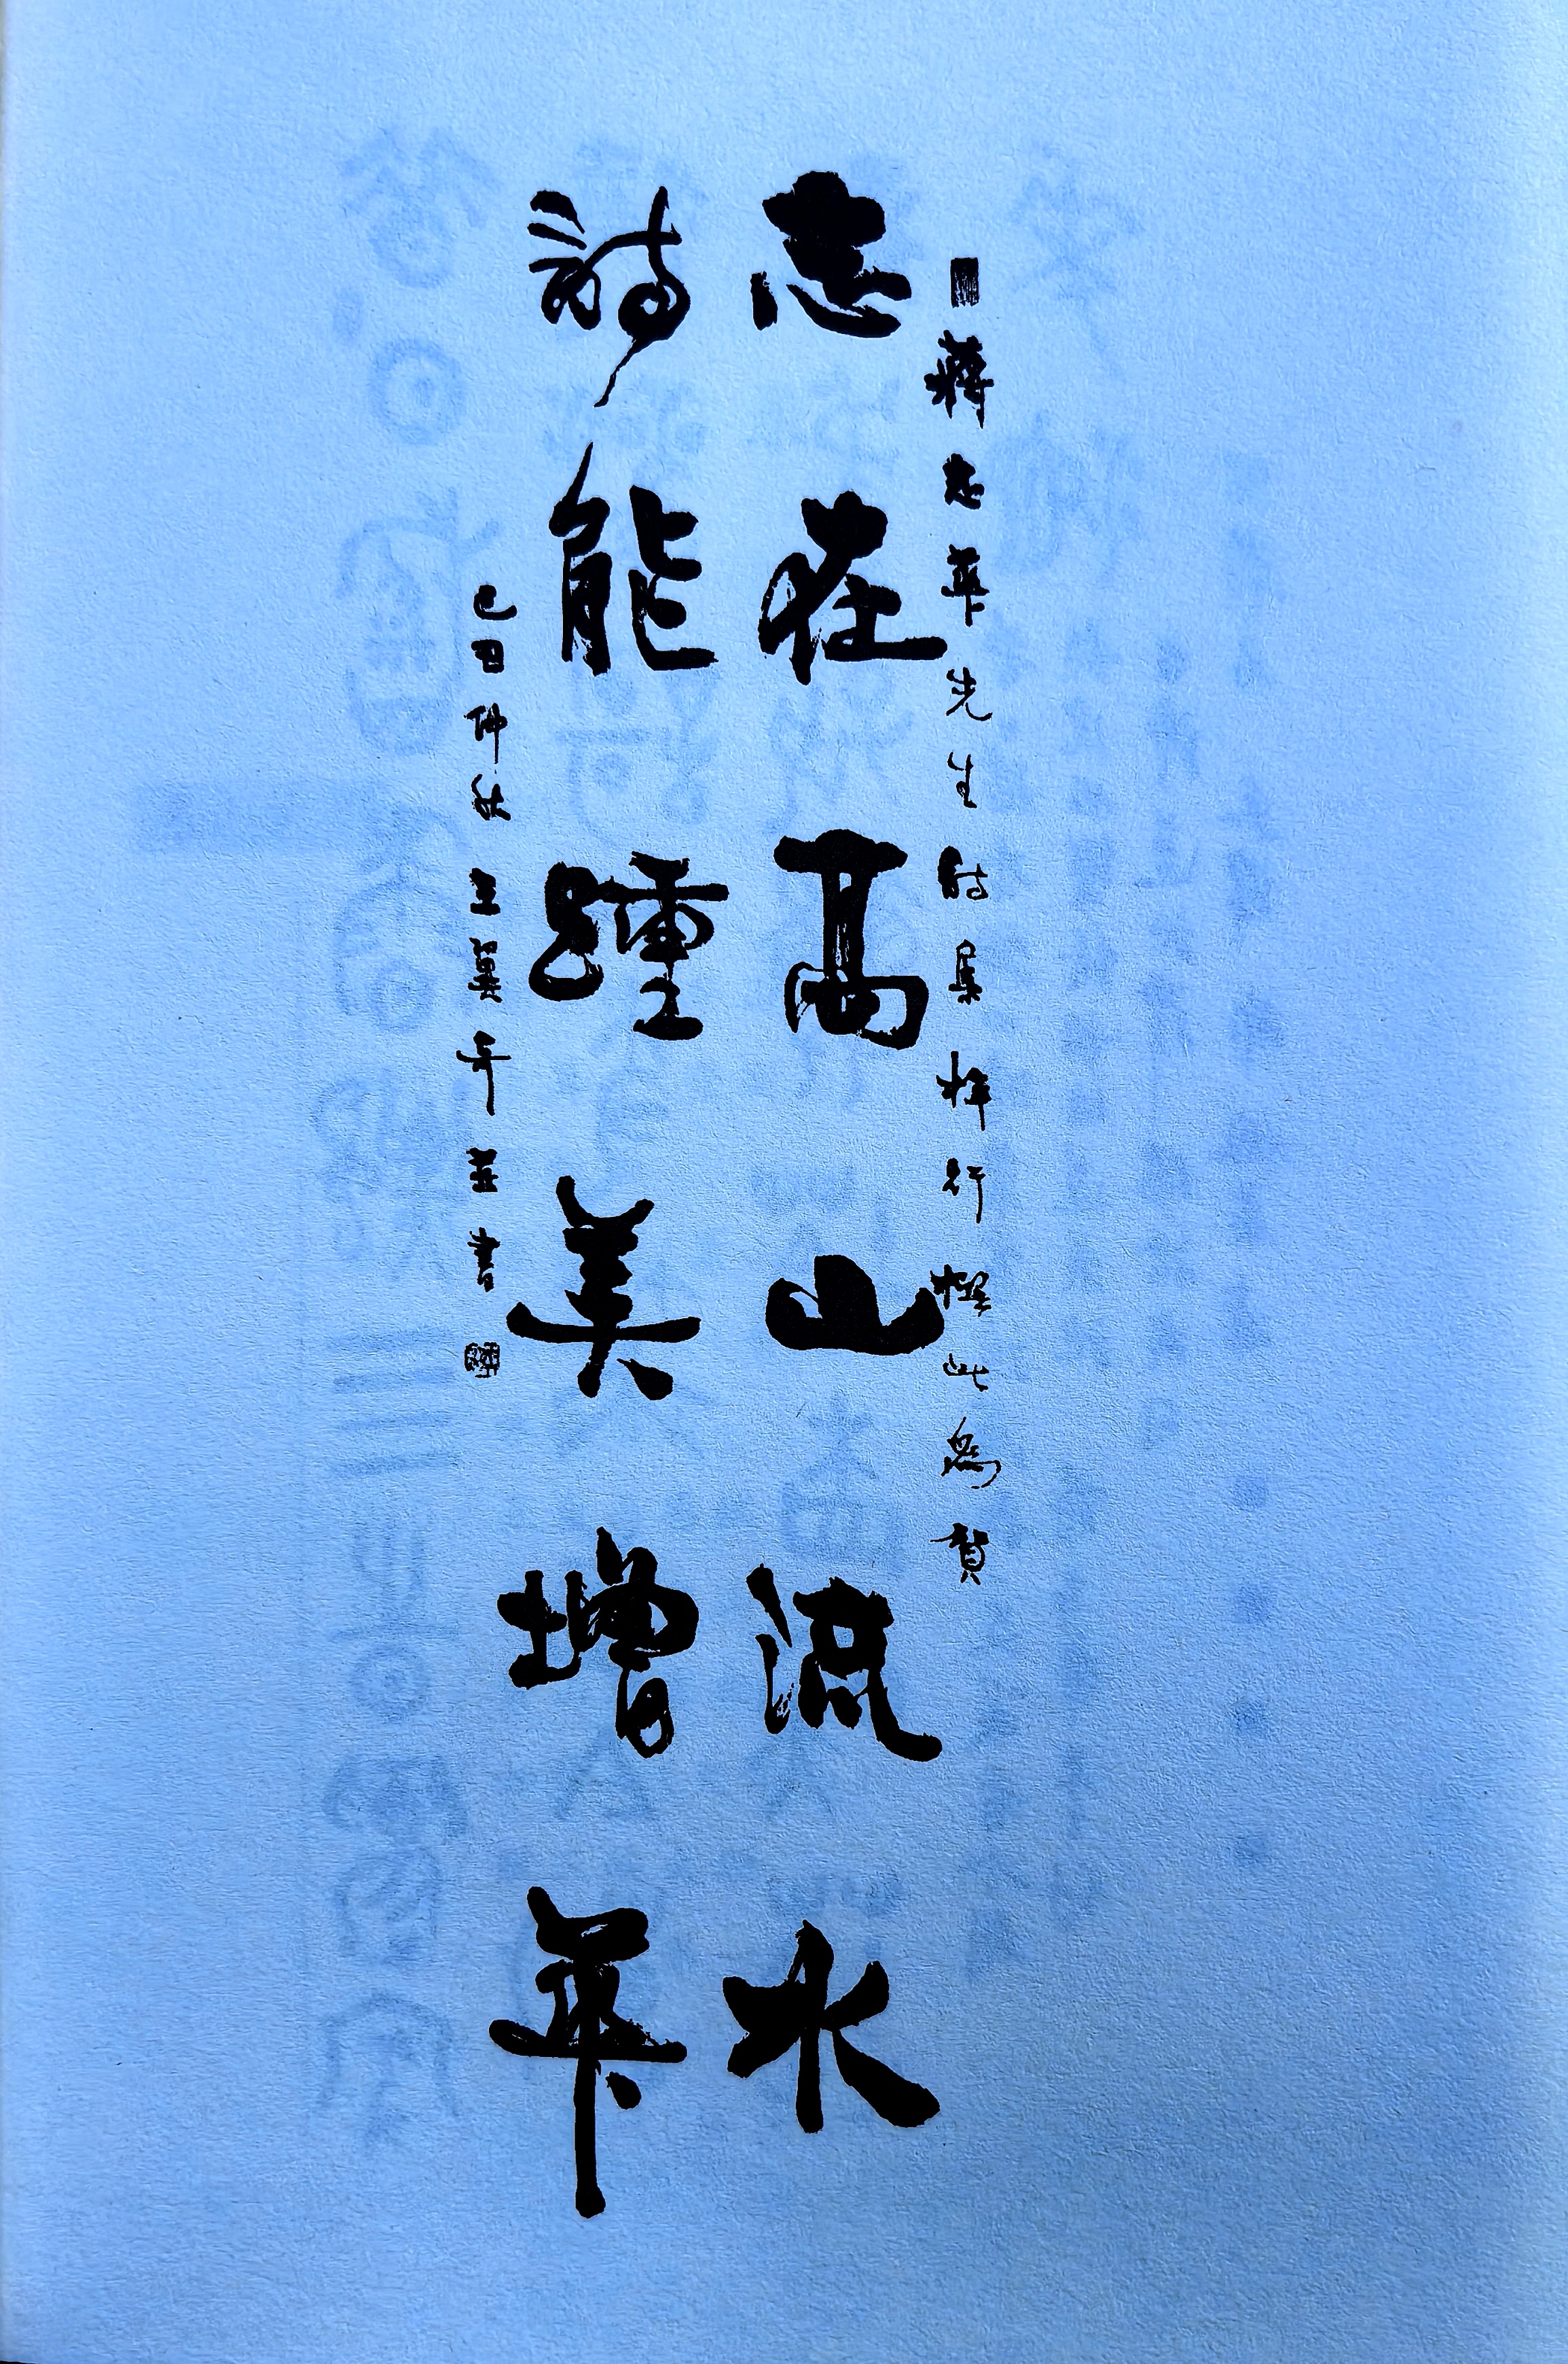 蔣志華先生詩集梓行撰此為賀
志在高山流水
詩能踵美增華
己丑仲秋王冀奇並書